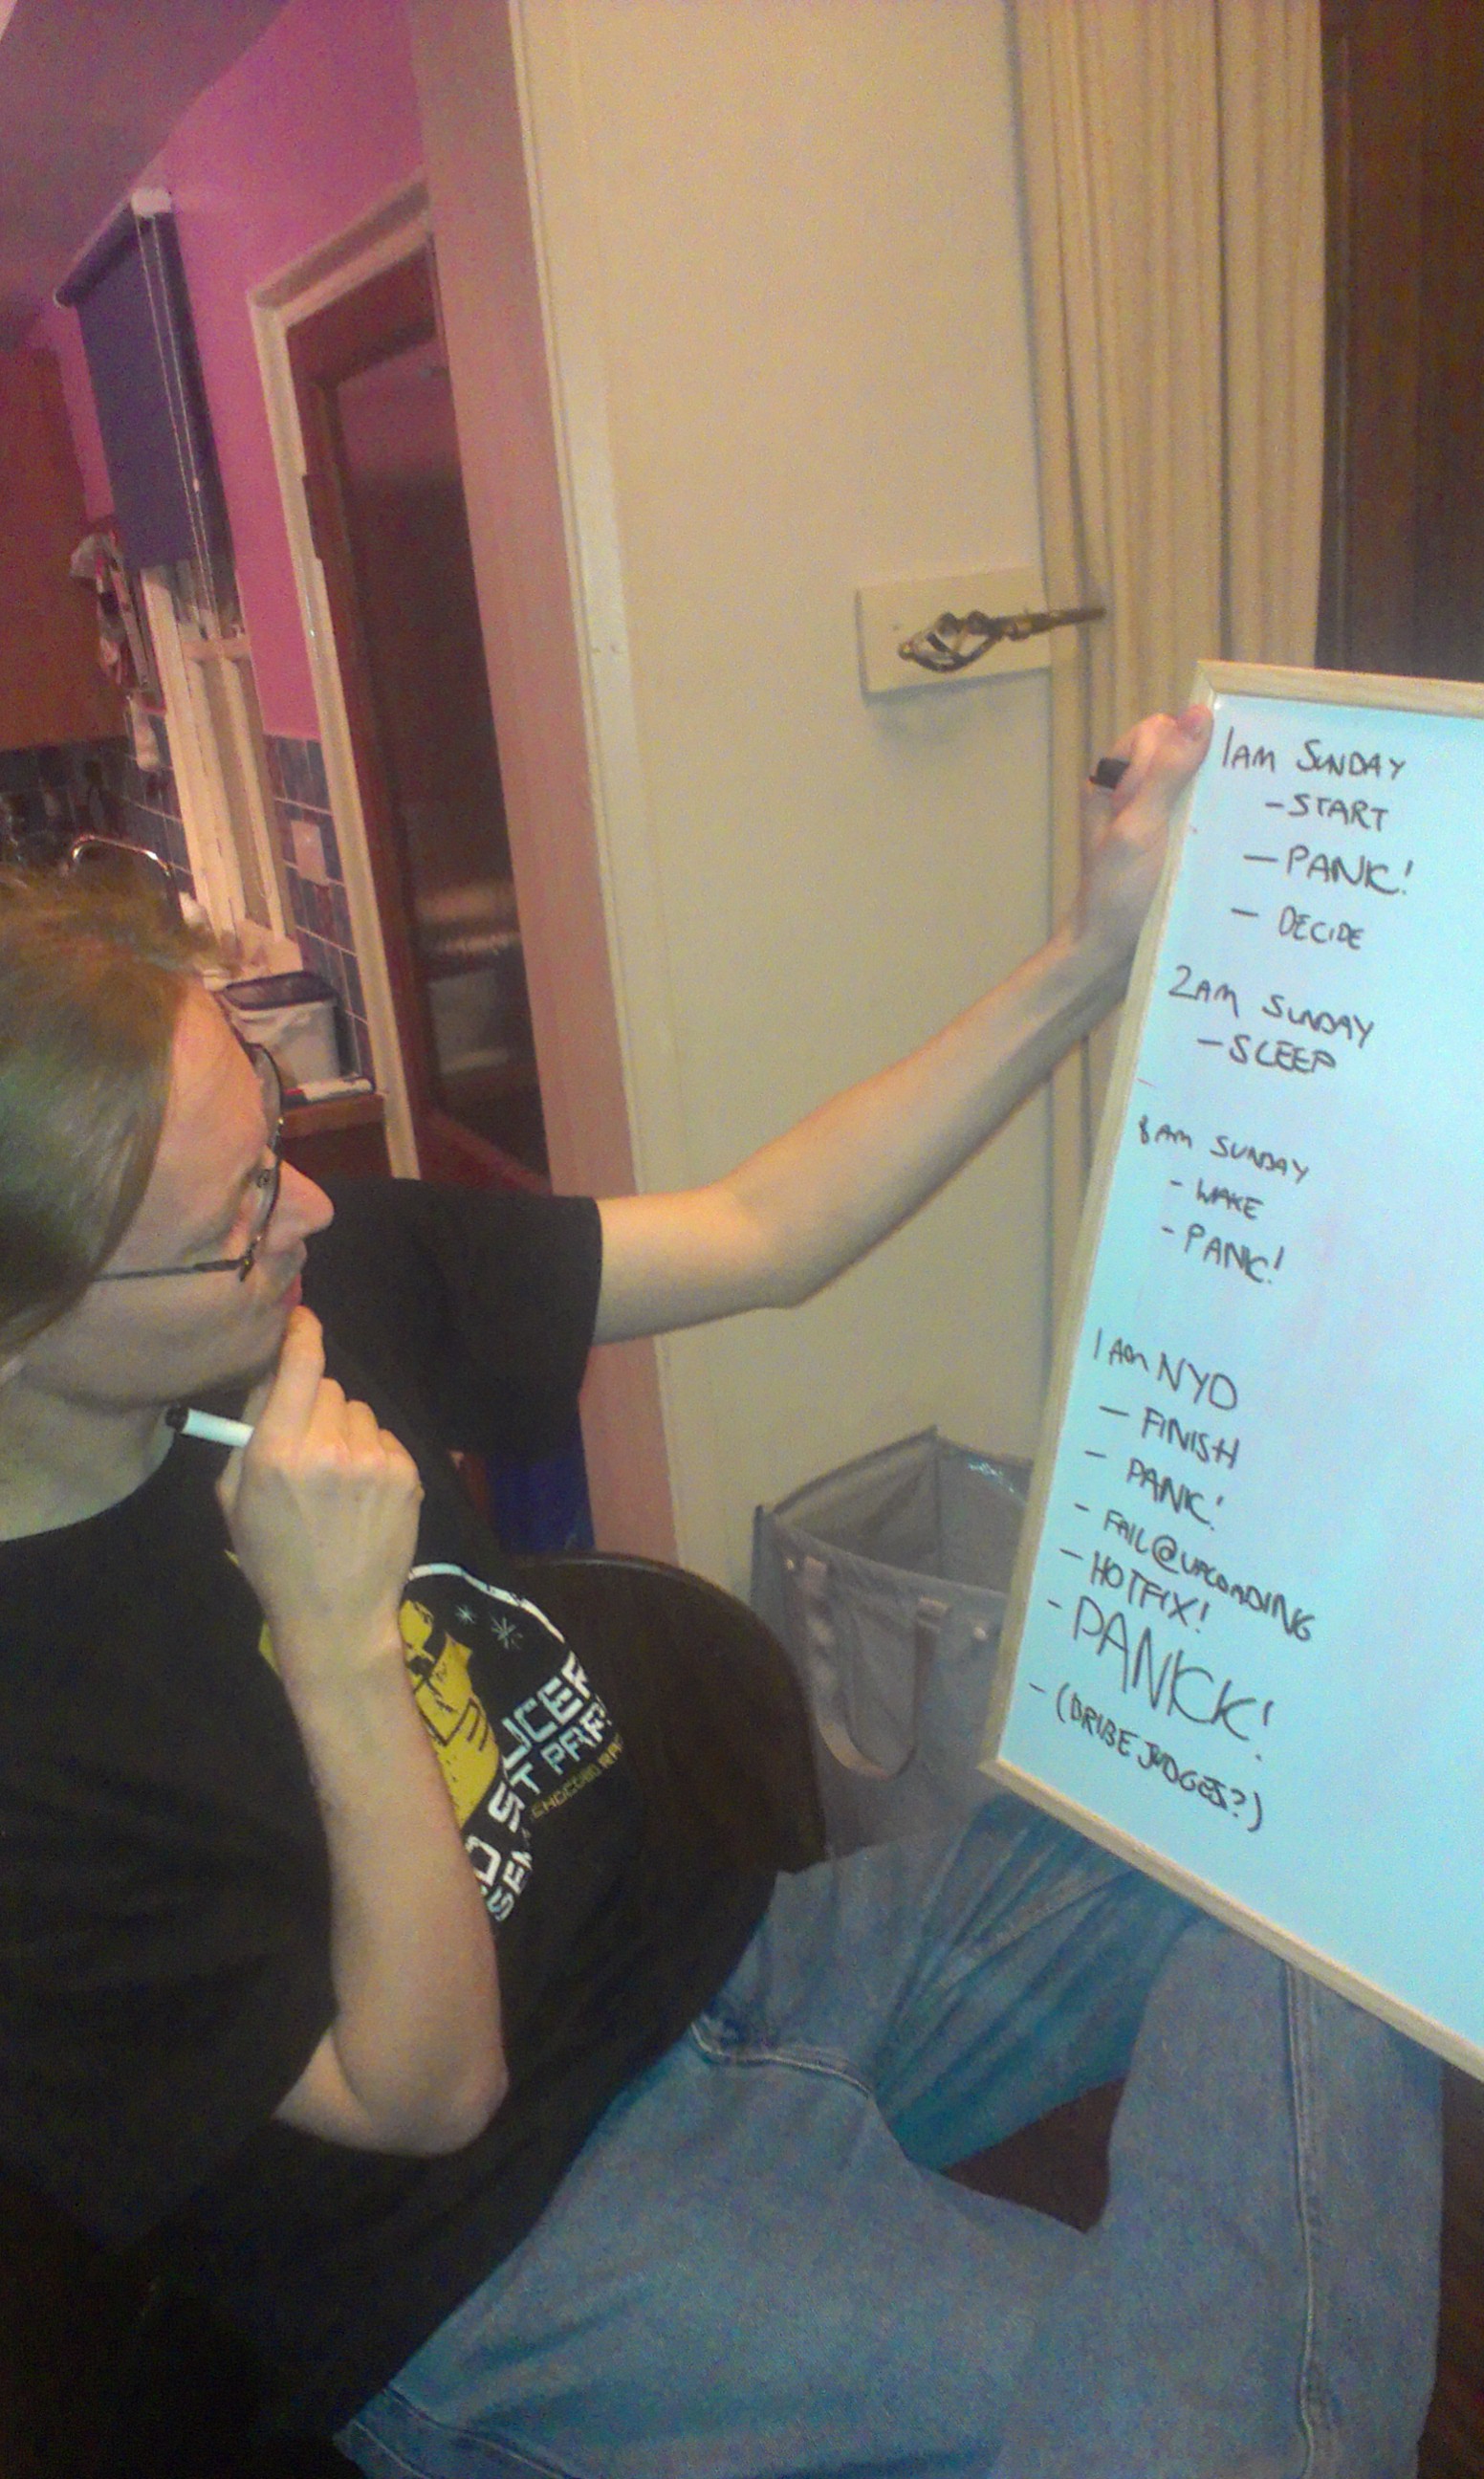 1AM SUNDAY
- START
- PANIC!
- DECIDE
2AM SUNDAY
- SLEEP
8AM SUNDAY
- WAKE
- PANIC!
1AM NYD
- FINISH
- PANIC!
- FAIL@UPLOADING
- HOTFIX!
- PANICK!
- (BRIBE JUDGES?)